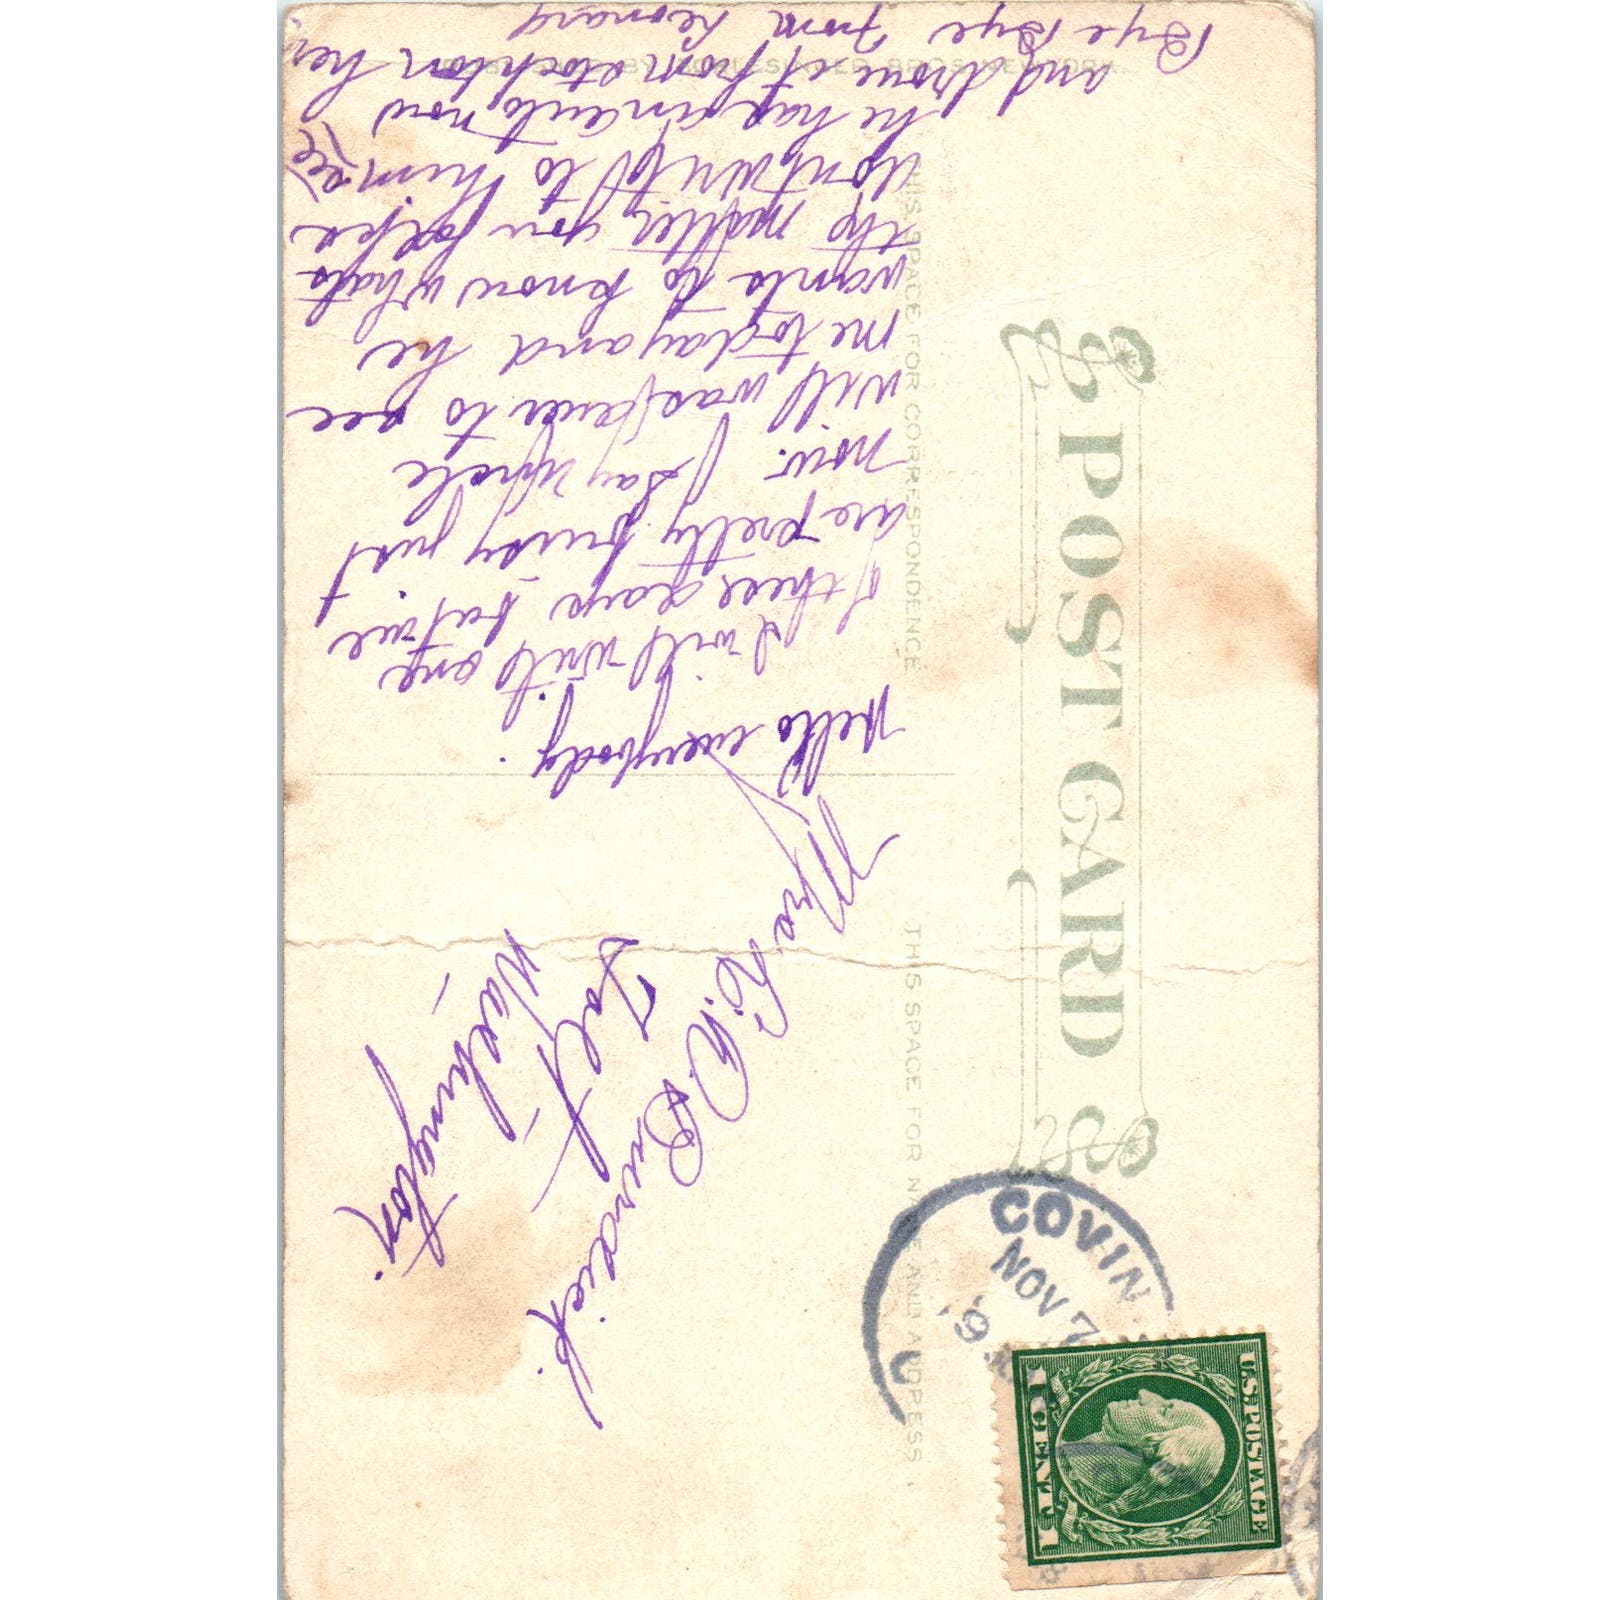 POST CARD
THIS SPACE FOR CORRESPONDENCE
THIS SPACE FOR NAME AND ADDRESS
Hello everybody.
I will write one
of these days but we
are pretty busy just
now. Say Uncle
Will was here to see
me today and he
wants to know whats
the matter you folks
dont write to him
he has an auto now
and drove it from Stockton here
Bye Bye From Leonard
Mrs E. A. Burdick.
Taft
Washington.
COVIN
NOV 7
U.S. POSTAGE
1 CENT 1